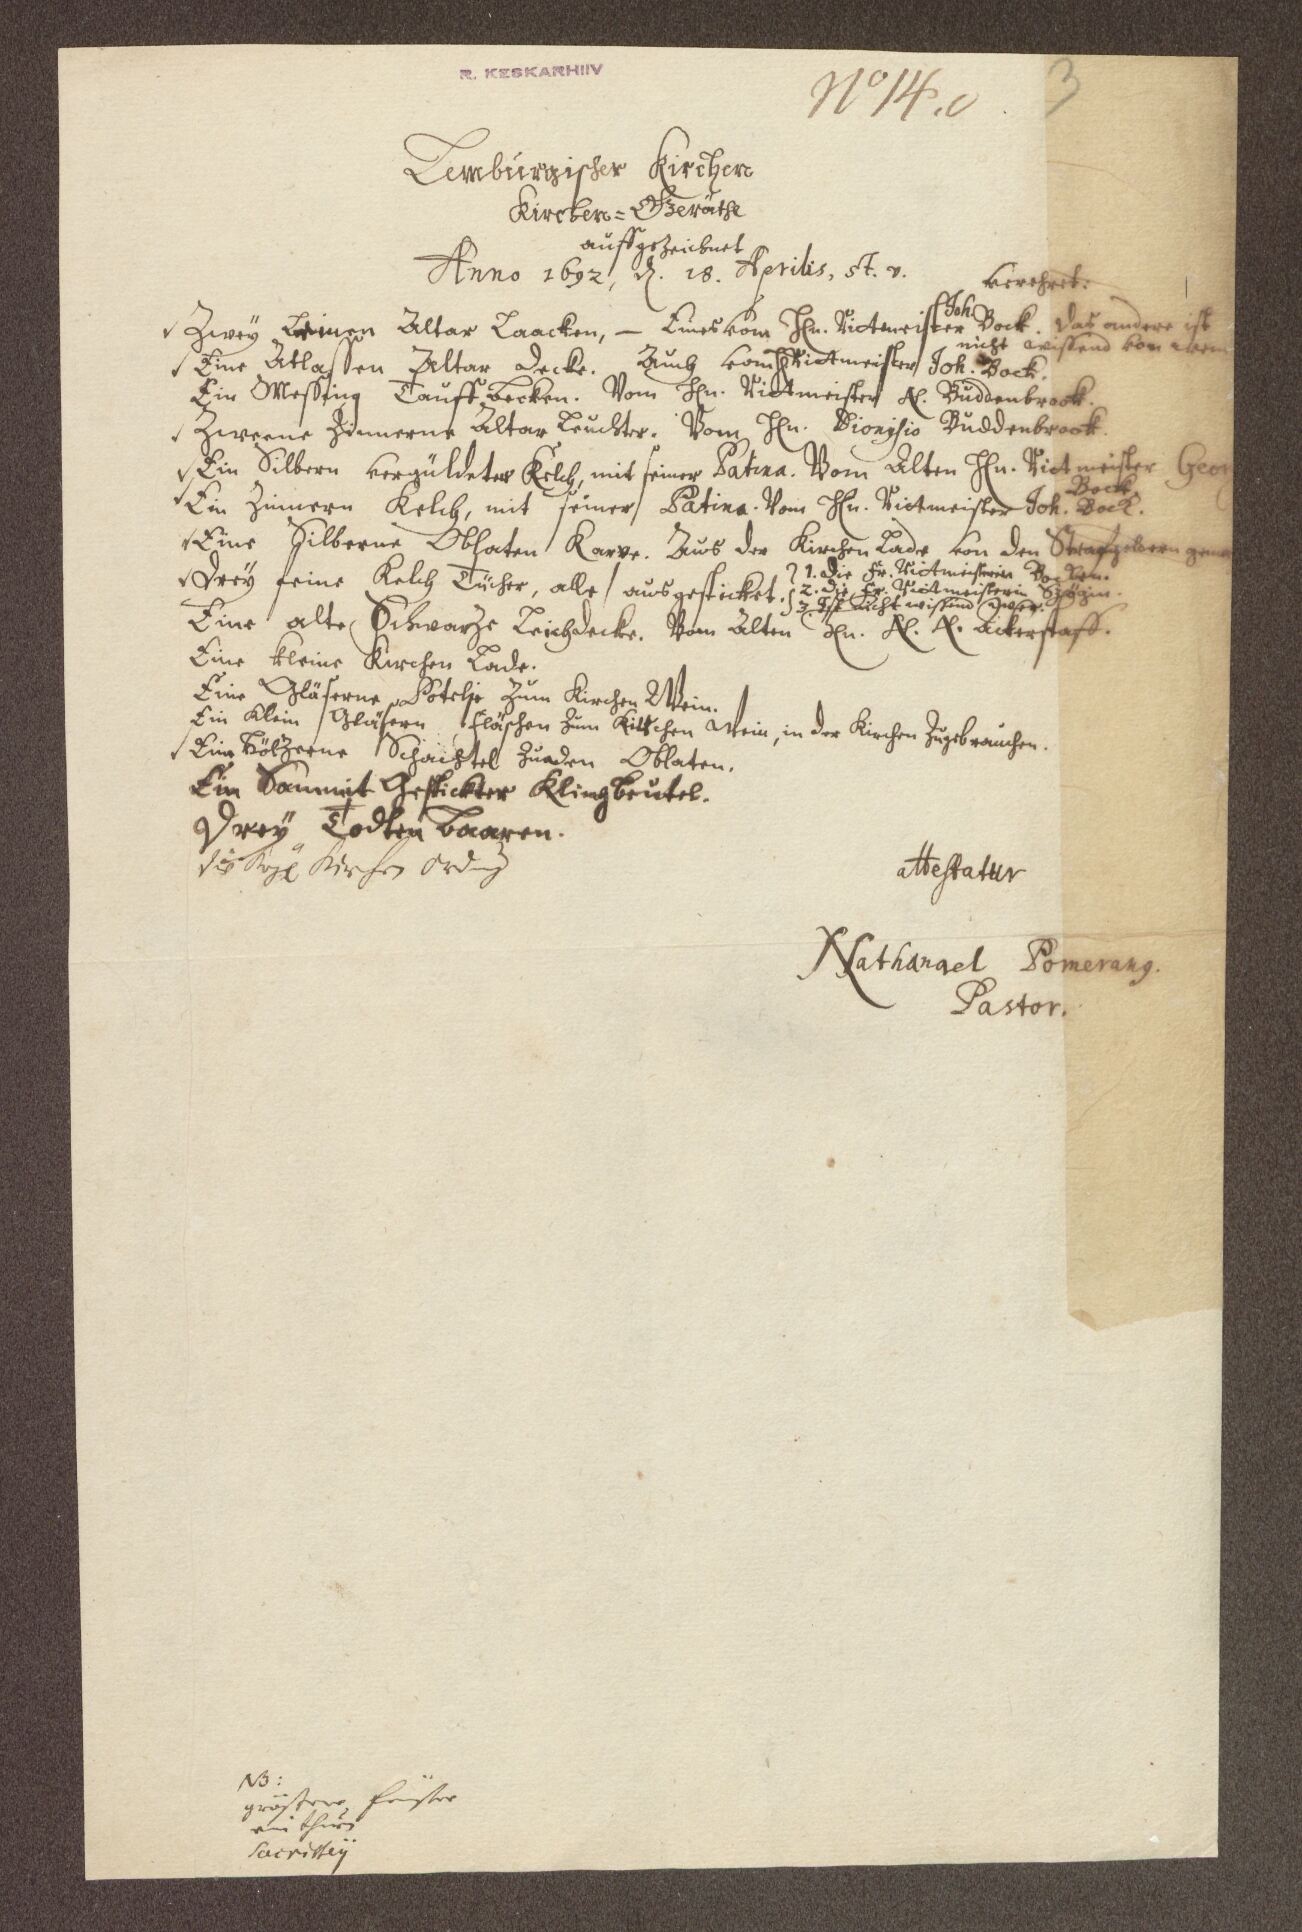 R. KESKARHIIV
No 14.
3
Lemburgischer Kirchen
Kirchen-Geräthe
auffgezeichnet
Anno 1692, d. 18. Aprilis, st. v.
verehret:
Zwey Leinen Altar Laacken, – Eines vom Hn. Rittmeister Joh. Bock. das andere ist
nicht wissend von wem
Eine Atlassen Altar Decke. Auch vom H. Rittmeister Joh. Bock.
Ein Messing Tauff Becken. Vom Hn. Rittmeister N. Buddenbrook.
Zweene Zinnerne Altar Leuchter. Vom Hn. Dionysio Buddenbrook.
Ein Silbern vergüldeter Kelch, mit seiner Patina. Vom Alten Hn. Rittmeister Geor
Bock.
Ein Zinnern Kelch, mit seiner Patina. Vom Hn. Rittmeister Joh. Bock.
Eine Silberne Oblaten Karpe. Aus der Kirchen Lade von den Strafgeldern
Drey feine Kelch Tücher, alle ausgesticket.
1. Die Fr. Rittmeisterin Bocken.
2. Die Fr. Rittmeisterin
3. Ist nicht wissend wer.
Eine alte Schwarze Leichdecke. Vom Alten Hn. N. N. Ackerstaff.
Eine kleine Kirchen Lade.
Eine Gläserne Potelje zum Kirchen Wein.
Ein Klein Gläsern Fläschen zum Kirchen Wein, in der Kirchen Zugebrauchen.
Eine höltzerne Schachtel zu den Oblaten.
Ein Sammit Gestickter Klingbeutel.
Drey Todten Baaren.
die Kirchen Ordng
attestatur
Nathanael Pomerang.
Pastor.
NB:
grössere fenster
ein thür
Sacristey